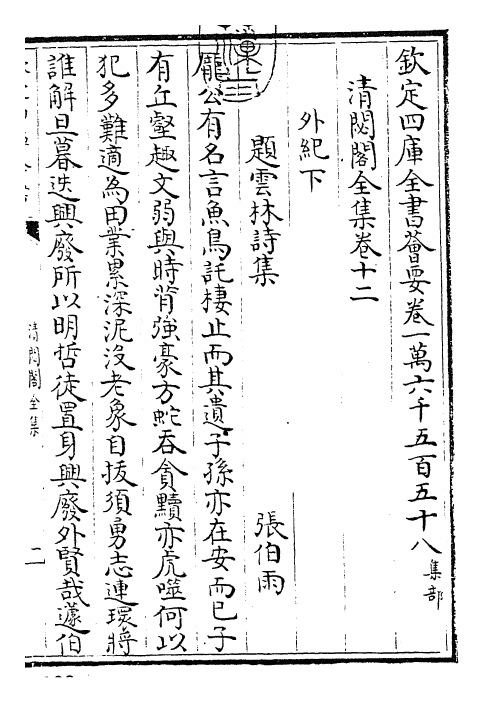 欽定四庫全書薈要卷一萬六千五百五十八集部
清閟閣全集卷十二
外紀下
題雲林詩集 張伯雨
龐公有名言魚鳥託棲止而其遺子孫亦在安而已子
有丘壑趣文弱與時背強豪方蛇吞貪黷亦虎噬何以
犯多難適為田業累深泥没老象自拔須勇志連環將
誰解旦暮迭興廢所以明哲徒置身興廢外賢哉蘧伯
清閟閣全集
二